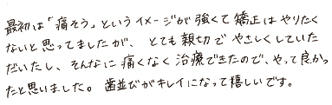 最初は「痛そう」というイメージが強くて矯正はやりたく
ないと思ってましたが、とても親切でやさしくしていた
だいたし、そんなに痛くなく治療できたので、やって良かっ
たと思いました。歯並びがキレイになって嬉しいです。